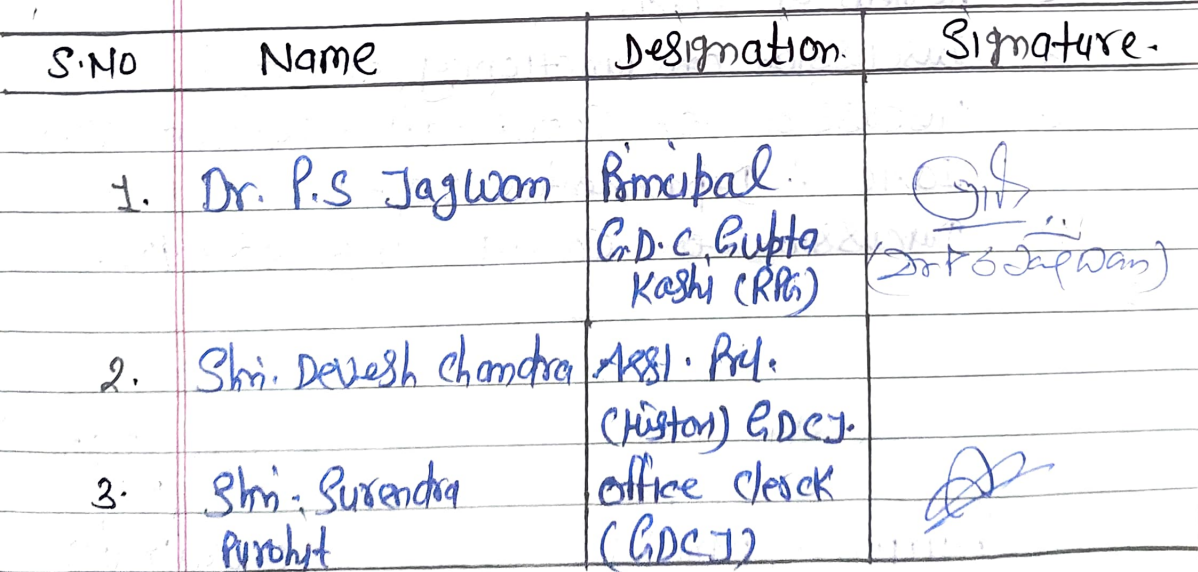 S.NO Name Designation. Signature.
1. Dr. P.S Jagwan Principal
G.D.C, Gupta
Kashi (RPG)
(Dr P S Jagwan)
2. Shri. Devesh Chandra Asst. Prof.
(History) GDCJ.
3. Shri. Surendra office clerck
Purohit (GDCJ)